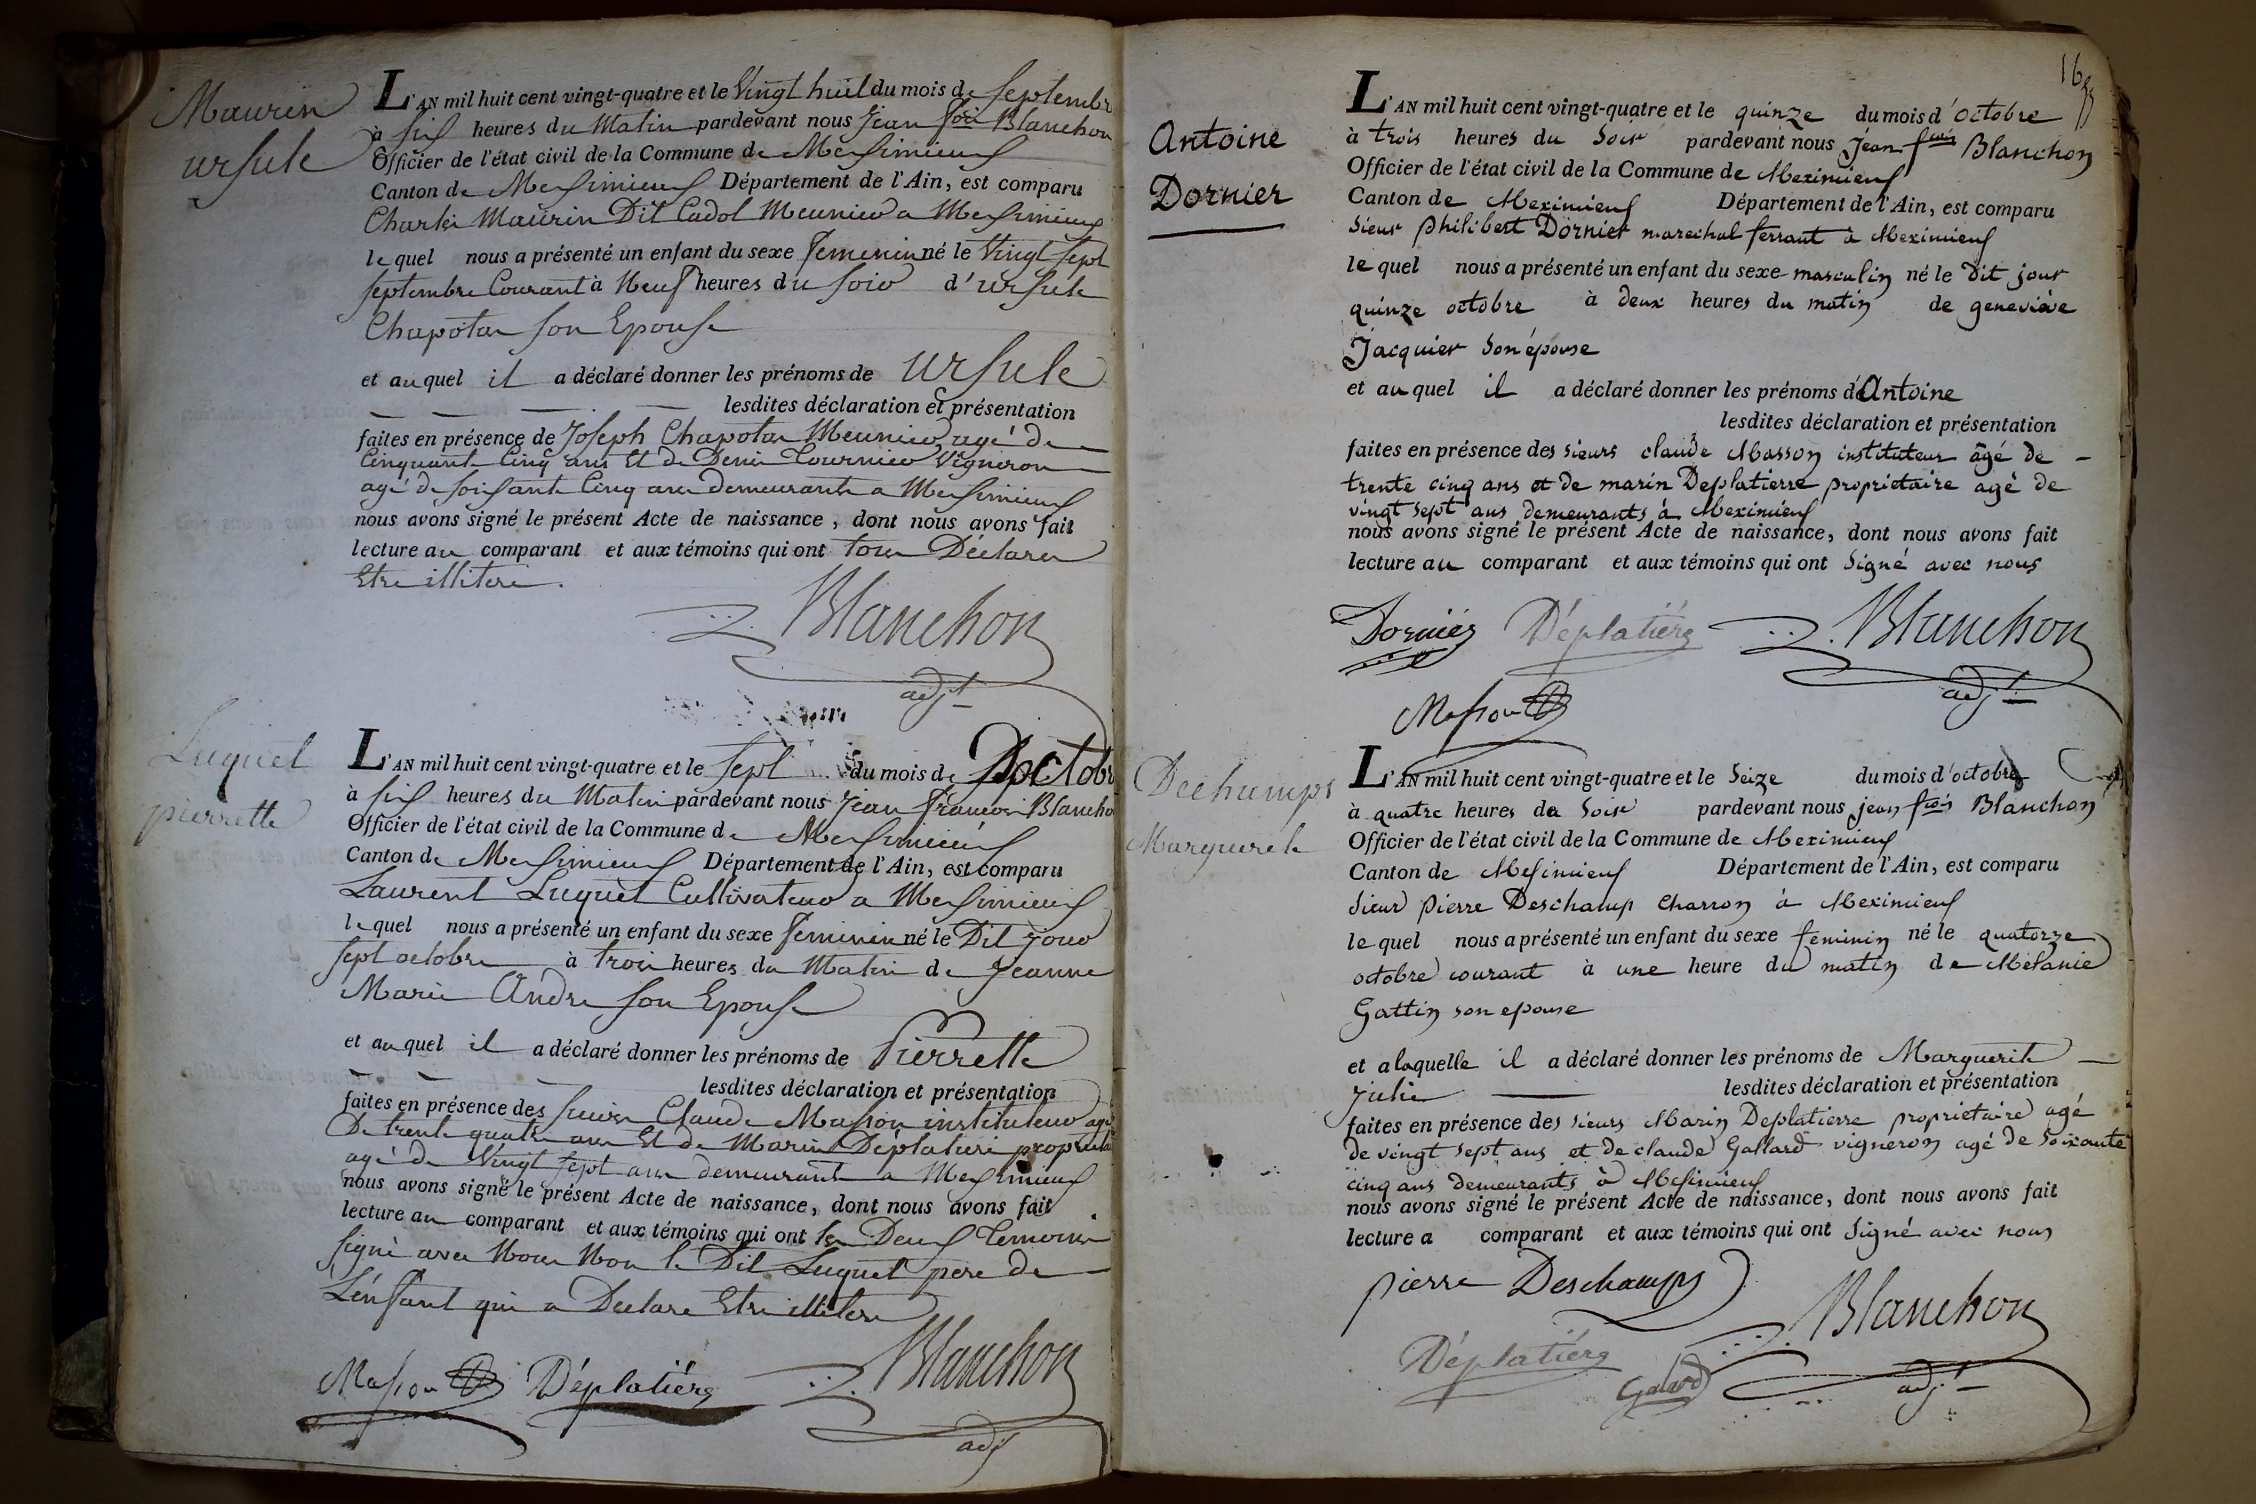 Maurin
ursule
L'AN mil huit cent vingt-quatre et le Vingt huit du mois de Septembre
à six heures du Matin pardevant nous Jean fois Blanchon
Officier de l'état civil de la Commune de Meximieux
Canton de Meximieux Département de l'Ain, est comparu
Charles Maurin Dit Cadol Meunier a Meximieux
le quel nous a présenté un enfant du sexe Feminin né le Vingt sept
septembre Courant à Neuf heures du soir d'ursule
Chapotar son Epouse
et au quel il a déclaré donner les prénoms de ursule
lesdites déclaration et présentation
faites en présence de Joseph Chapotar Meunier, agé de
Cinquante Cinq ans Et de Denis Tournier Vigneron
agé de soixante Cinq ans demeurants a Meximieux
nous avons signé le présent Acte de naissance, dont nous avons fait
lecture au comparant et aux témoins qui ont tous Déclarer
Etre illiteré.
Blanchon
adjt
Luquet
pierrette
L'AN mil huit cent vingt-quatre et le sept du mois d'Octobre
à six heures du Matin pardevant nous Jean françois Blanchon
Officier de l'état civil de la Commune de Meximieux
Canton de Meximieux Département de l'Ain, est comparu
Laurent Luquet Cultivateur a Meximieux
le quel nous a présenté un enfant du sexe Feminin né le Dit jour
sept octobre à trois heures du Matin de Jeanne
Marie Andre son Epouse
et au quel il a déclaré donner les prénoms de Pierrette
lesdites déclaration et présentation
faites en présence des sieurs Claude Masson instituteur agé
De trente quatre ans Et de Marin Déplatiere proprietaire
agé de Vingt sept ans demeurants a Meximieux
nous avons signé le présent Acte de naissance, dont nous avons fait
lecture au comparant et aux témoins qui ont les Deux Temoins
signé avec Nous Non le Dit Luquet pere de
L'énfant qui a Declare Etre illiteré
Masson Déplatière Blanchon
adjt
Antoine
Dornier
L'AN mil huit cent vingt-quatre et le quinze du mois d'octobre
à trois heures du Soir pardevant nous Jean fois Blanchon
Officier de l'état civil de la Commune de Meximieux
Canton de Meximieux Département de l'Ain, est comparu
Sieur Philibert Dornier marechal ferrant à Meximieux
le quel nous a présenté un enfant du sexe masculin né le Dit jour
quinze octobre à deux heures du matin de geneviève
Jacquier Son épouse
et au quel il a déclaré donner les prénoms d'Antoine
lesdites déclaration et présentation
faites en présence des sieurs claude Masson instituteur âgé de
trente cinq ans et de marin Deplatierre proprietaire agé de
vingt sept ans demeurants à Meximieux
nous avons signé le présent Acte de naissance, dont nous avons fait
lecture au comparant et aux témoins qui ont Signé avec nous
Dornier Déplatière Blanchon
adjt
Masson
Dechamps
Marguerite
L'AN mil huit cent vingt-quatre et le Seize du mois d'octobre
à quatre heures du Soir pardevant nous jean fois Blanchon
Officier de l'état civil de la Commune de Meximieux
Canton de Mesimieux Département de l'Ain, est comparu
Sieur Pierre Deschamp Charron à Meximieux
le quel nous a présenté un enfant du sexe feminin né le quatorze
octobre courant à une heure du matin de Mélanie
Gattin son epouse
et a laquelle il a déclaré donner les prénoms de Marguerite
Julie lesdites déclaration et présentation
faites en présence des sieurs Marin Deplatierre proprietaire agé
de vingt sept ans et de claude Gallard vigneron agé de soixante
cinq ans demeurants à Mesimieux
nous avons signé le présent Acte de naissance, dont nous avons fait
lecture a comparant et aux témoins qui ont Signé avec nous
pierre Deschamps
Blanchon
Déplatière Galard adjt